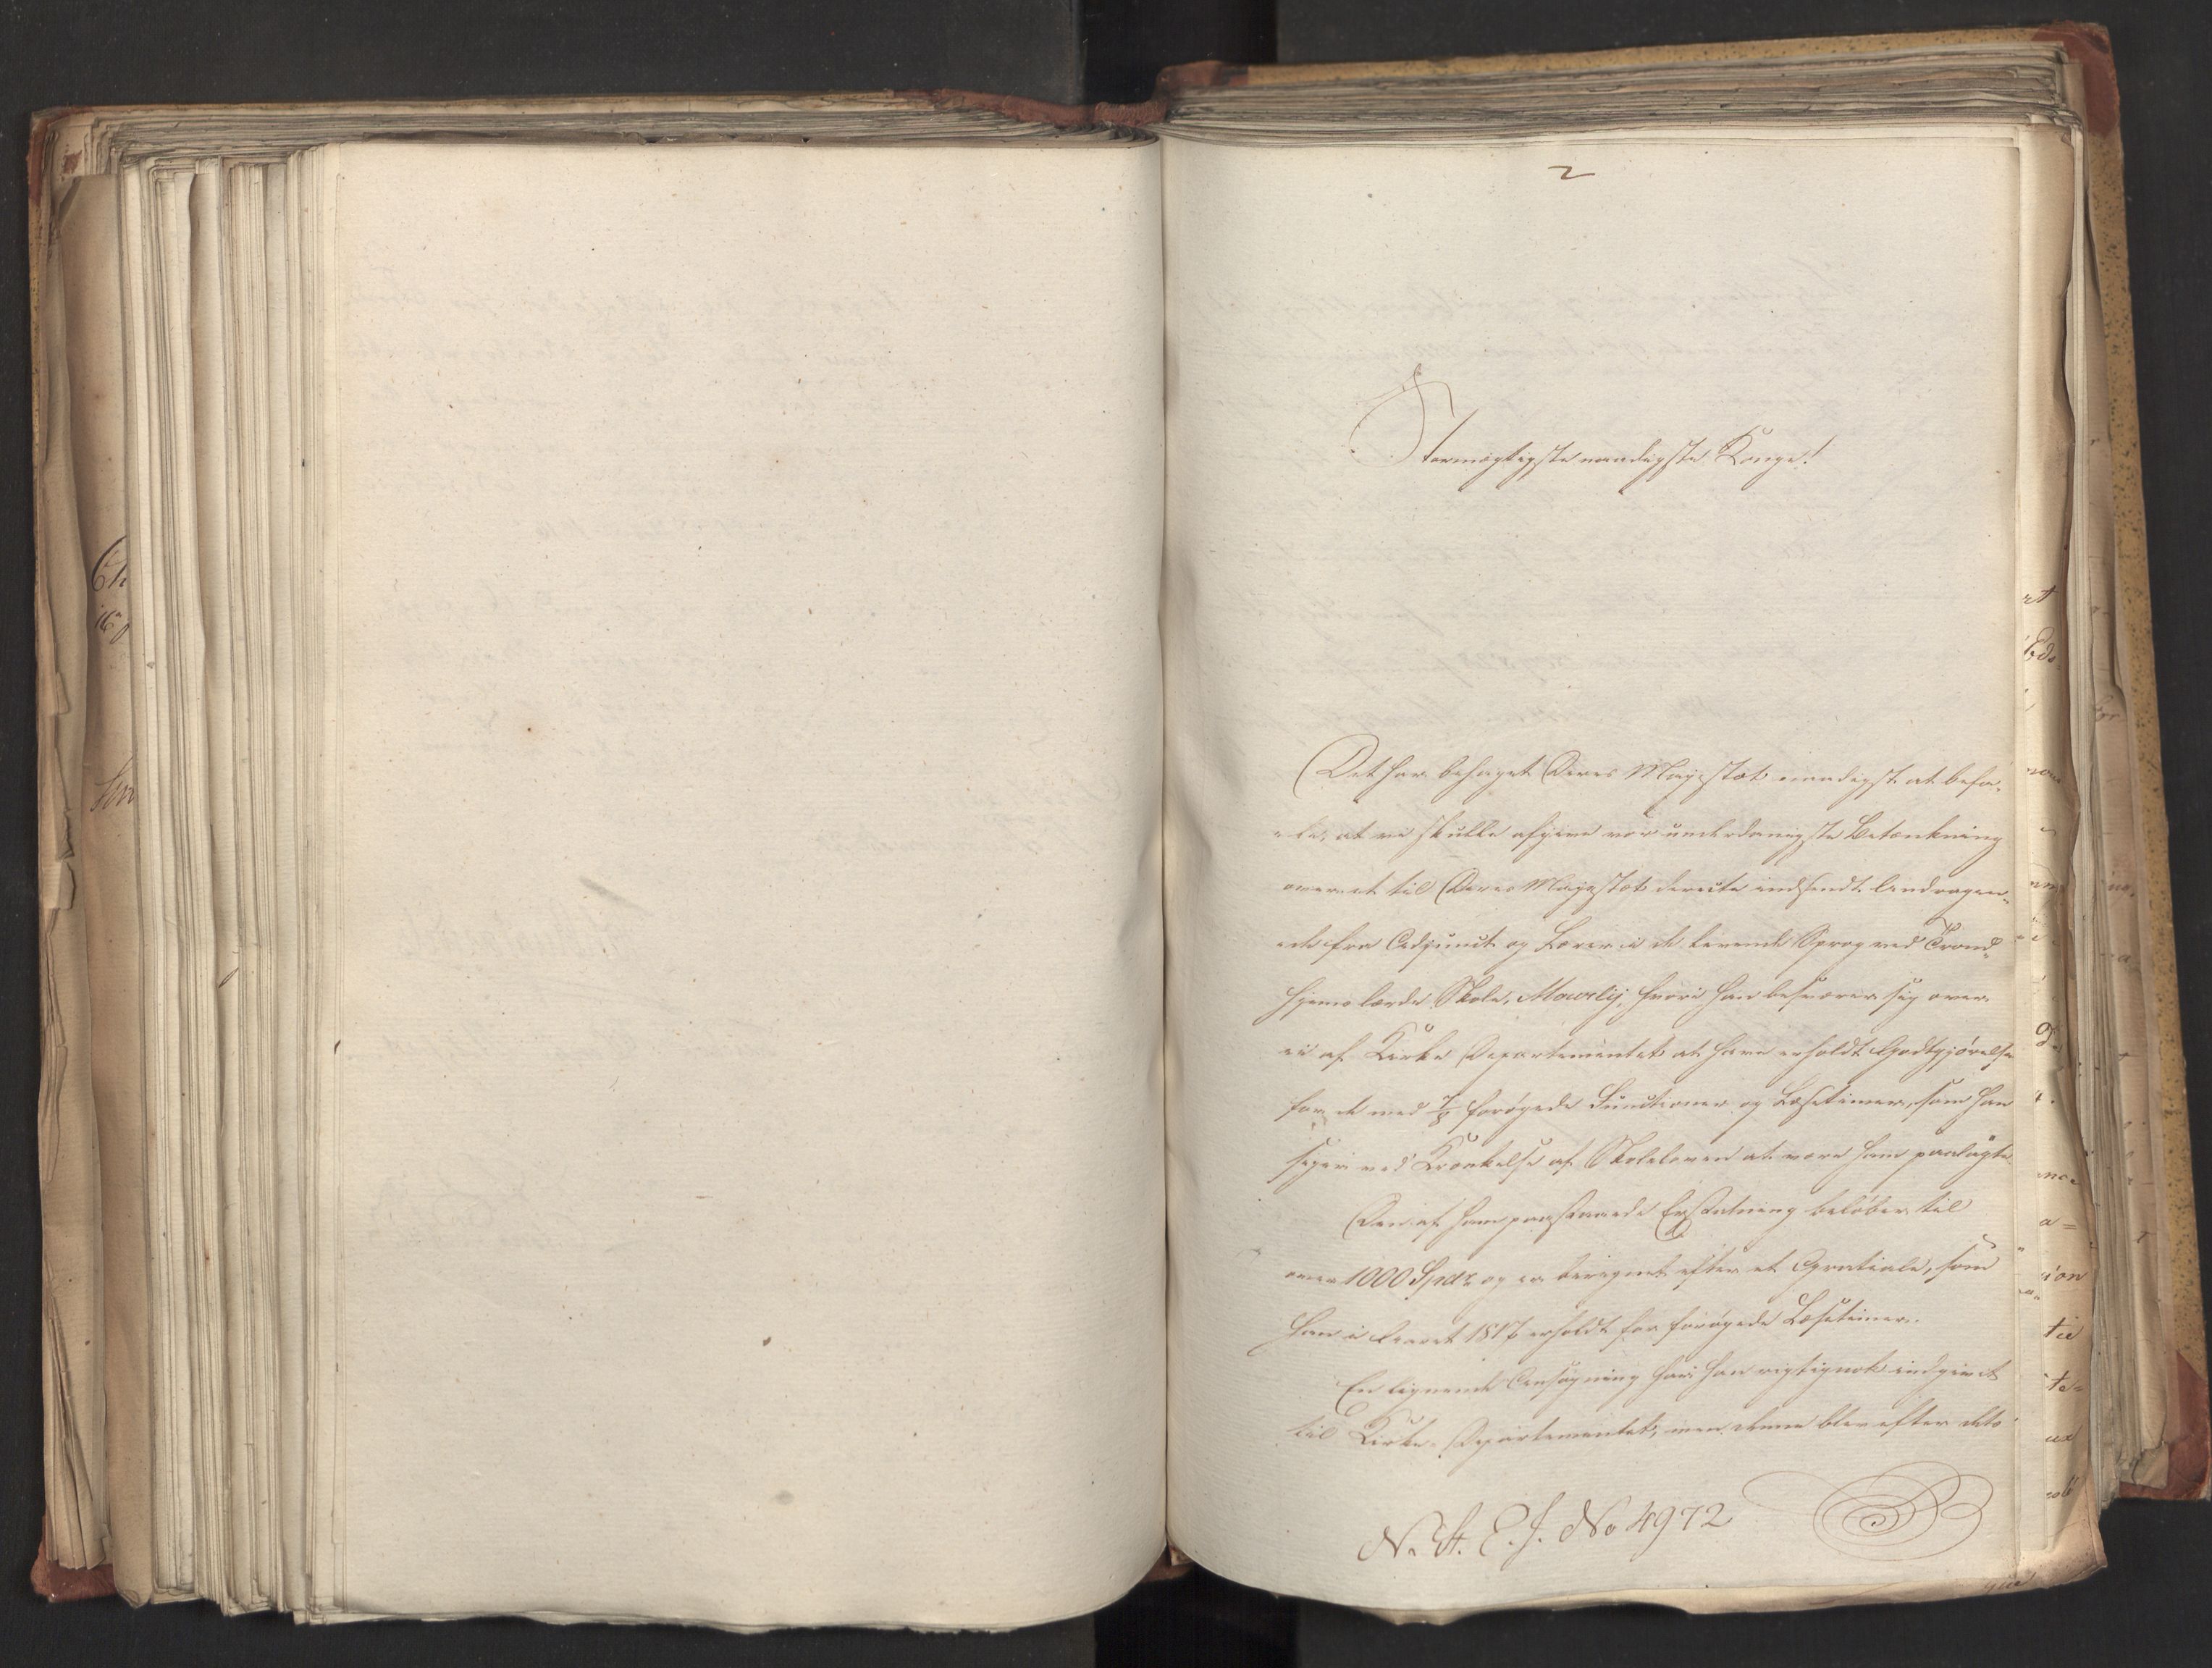 2
Stormægtigste naadigste Konge!
Det har behaget Deres Majestæt naadigst at befa-
"le, at vi skulle afgive vor underdanigste Betænkning
over et til Deres Majestæt directe indsendt Andragen-
"de fra Adjunct og Lærer i de levende Sprog ved Trond-
hjems lærde Skole, Mowrly, hvori han besværer sig over
ei af Kirke Departementet at have erholdt Godtgjørelse
for de med forøgede Functioner og Læsetimer, som han
siger ved Krænkelse af Skoleloven at være ham paalagte.
Den af ham paastaaede Erstatning beløber til
over 1000 Spdr og er beregnet efter et Gratiale, som
han i Aaret 1817 erholdt for forøgede Læsetimer.
En lignende Ansøgning har han rigtignok indgivet
til Kirke-Departementet, men denne blev efter dets
N. St. E. J. No 4972